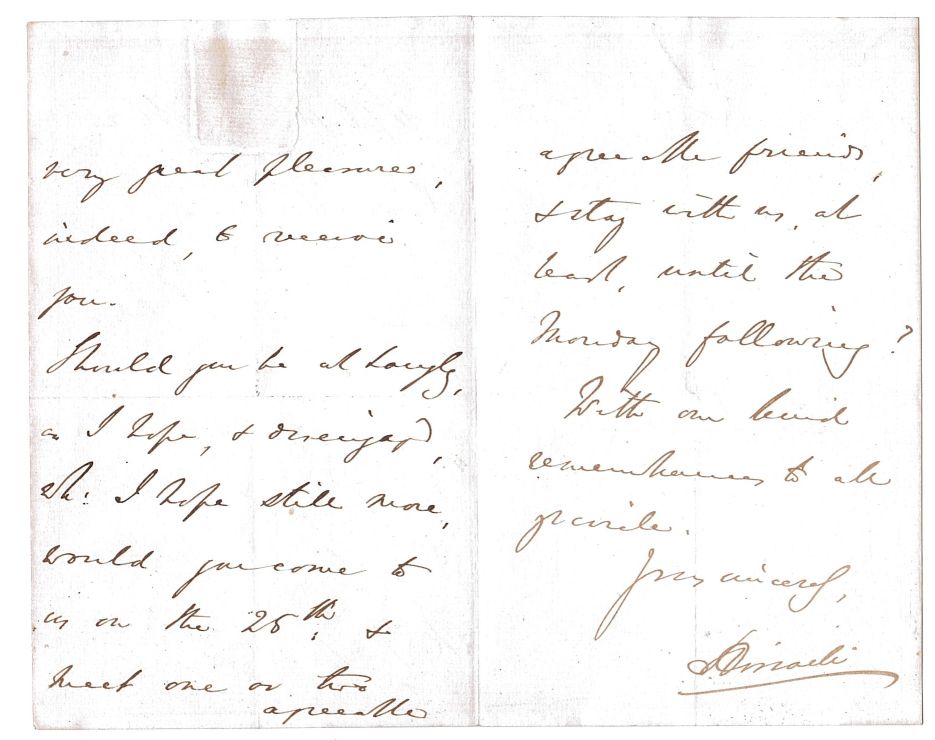 very great pleasure,
indeed, to receive
you.
Should you be at Langley,
as I hope, & disengaged,
wh: I hope still more,
would you come to
us on the 25th: &
meet one or two
agreeable
agreeable friends,
& stay with us, at
least, until the
Monday following?
With our kind
remembrances to all
yr circle.
Yrs sincerely,
D Disraeli